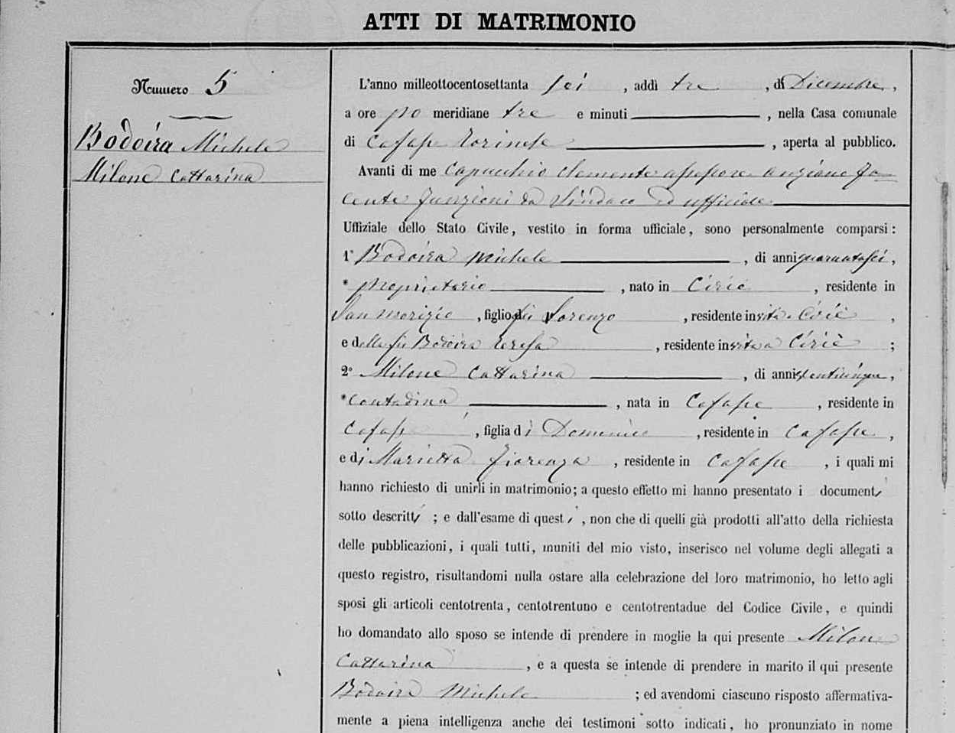 ATTI DI MATRIMONIO
Numero 5
Bodoira Michele
Milone Cattarina
L'anno milleottocentosettanta sei , addi tre , di Dicembre ,
a ore po meridiane tre e minuti , nella Casa comunale
di Cafasse Torinese , aperta al pubblico.
Avanti di me Capacchio Clemente assessore anziano fa-
cente funzioni da Sindaco ed ufficiale
Uffiziale dello Stato Civile, vestito in forma ufficiale, sono personalmente comparsi:
1° Bodoira Michele , di anni quarantasei,
* proprietario , nato in Ciriè , residente in
San Morizio , figlio di Lorenzo , residente in vita a Ciriè ,
e della fu Bodoira Teresa , residente in vita a Ciriè ;
2° Milone Cattarina , di anni venticinque,
* contadina , nata in Cafasse , residente in
Cafasse , figlia di Domenico , residente in Cafasse ,
e di Marietta Fiorenza , residente in Cafasse , i quali mi
hanno richiesto di unirli in matrimonio; a questo effetto mi hanno presentato i documenti
sotto descritti ; e dall'esame di questi , non che di quelli già prodotti all'atto della richiesta
delle pubblicazioni, i quali tutti, muniti del mio visto, inserisco nel volume degli allegati a
questo registro, risultandomi nulla ostare alla celebrazione del loro matrimonio, ho letto agli
sposi gli articoli centotrenta, centotrentuno e centotrentadue del Codice Civile, e quindi
ho domandato allo sposo se intende di prendere in moglie la qui presente Milone
Cattarina , e a questa se intende di prendere in marito il qui presente
Bodoira Michele ; ed avendomi ciascuno risposto affermativa-
mente a piena intelligenza anche dei testimoni sotto indicati, ho pronunziato in nome